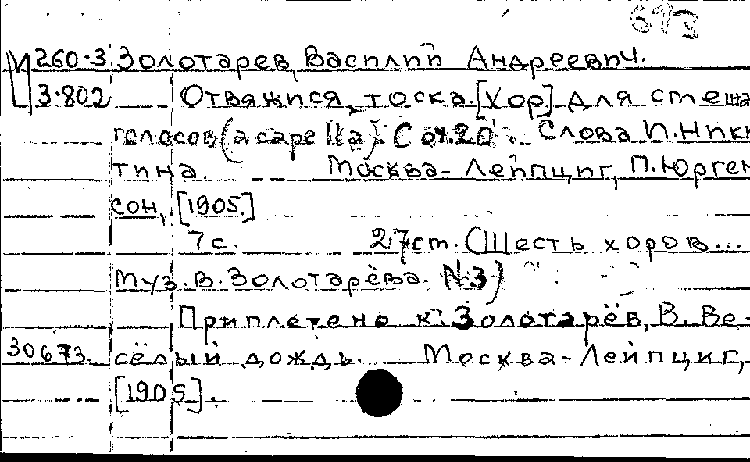 М 260-3 Золотарев, Василий Андреевич.
3-802 Отвяжися, тоска. [Хор] для смеша
голосов (a capella). Соч. 20. Слова И. Ники
тина. Москва-Лейпциг, П. Юрген
сон, [1905.]
7 с. 27 см. (Шесть хоров...
муз. В. Золотарёва. №3)
Приплетено к: Золотарёв, В. Ве-
30673. сёлый дождь. Москва-Лейпциг,
[1905].